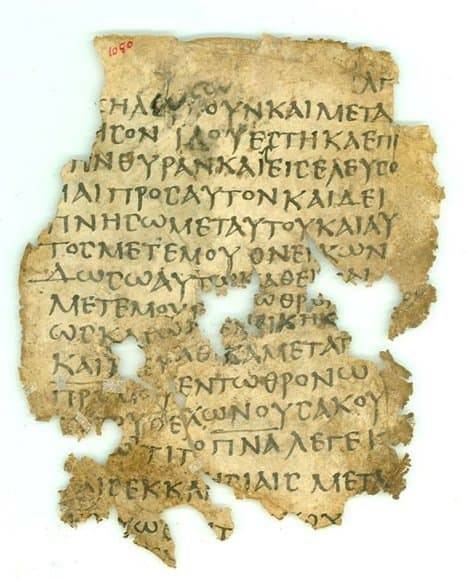 1080
ΣΗΛΕΥ ΟΥΝ ΚΑΙ ΜΕΤΑ
ΗΣΟΝ ΙΔΟΥ ΕΣΤΗΚΑ ΕΠΙ
ΤΗΝ ΘΥΡΑΝ ΚΑΙ ΕΙΣΕΛΕΥΣΟ
ΜΑΙ ΠΡΟΣ ΑΥΤΟΝ ΚΑΙ ΔΕΙ
ΠΝΗΣΩ ΜΕΤ ΑΥΤΟΥ ΚΑΙ ΑΥ
ΤΟΣ ΜΕΤ ΕΜΟΥ Ο ΝΕΙΚΩΝ
ΔΩΣΩ ΑΥΤΩ ΚΑΘΕΙΣΑΙ
ΜΕΤ ΕΜΟΥ ΘΡΟ
ΩΣ ΚΑΓΩ ΕΝΕΙΚΗΚ
ΚΑΙ ΕΚΑΘΙΣΑ ΜΕΤΑ
ΠΡΣ ΜΟΥ ΕΝ ΤΩ ΘΡΟΝΩ
ΟΥ Ο ΕΧΩΝ ΟΥΣ ΑΚΟΥ
ΤΙ ΤΟ ΠΝΑ ΛΕΓΕΙ
ΑΙΣ ΕΚΚΛΗΣΙΑΙΣ ΜΕΤΑ